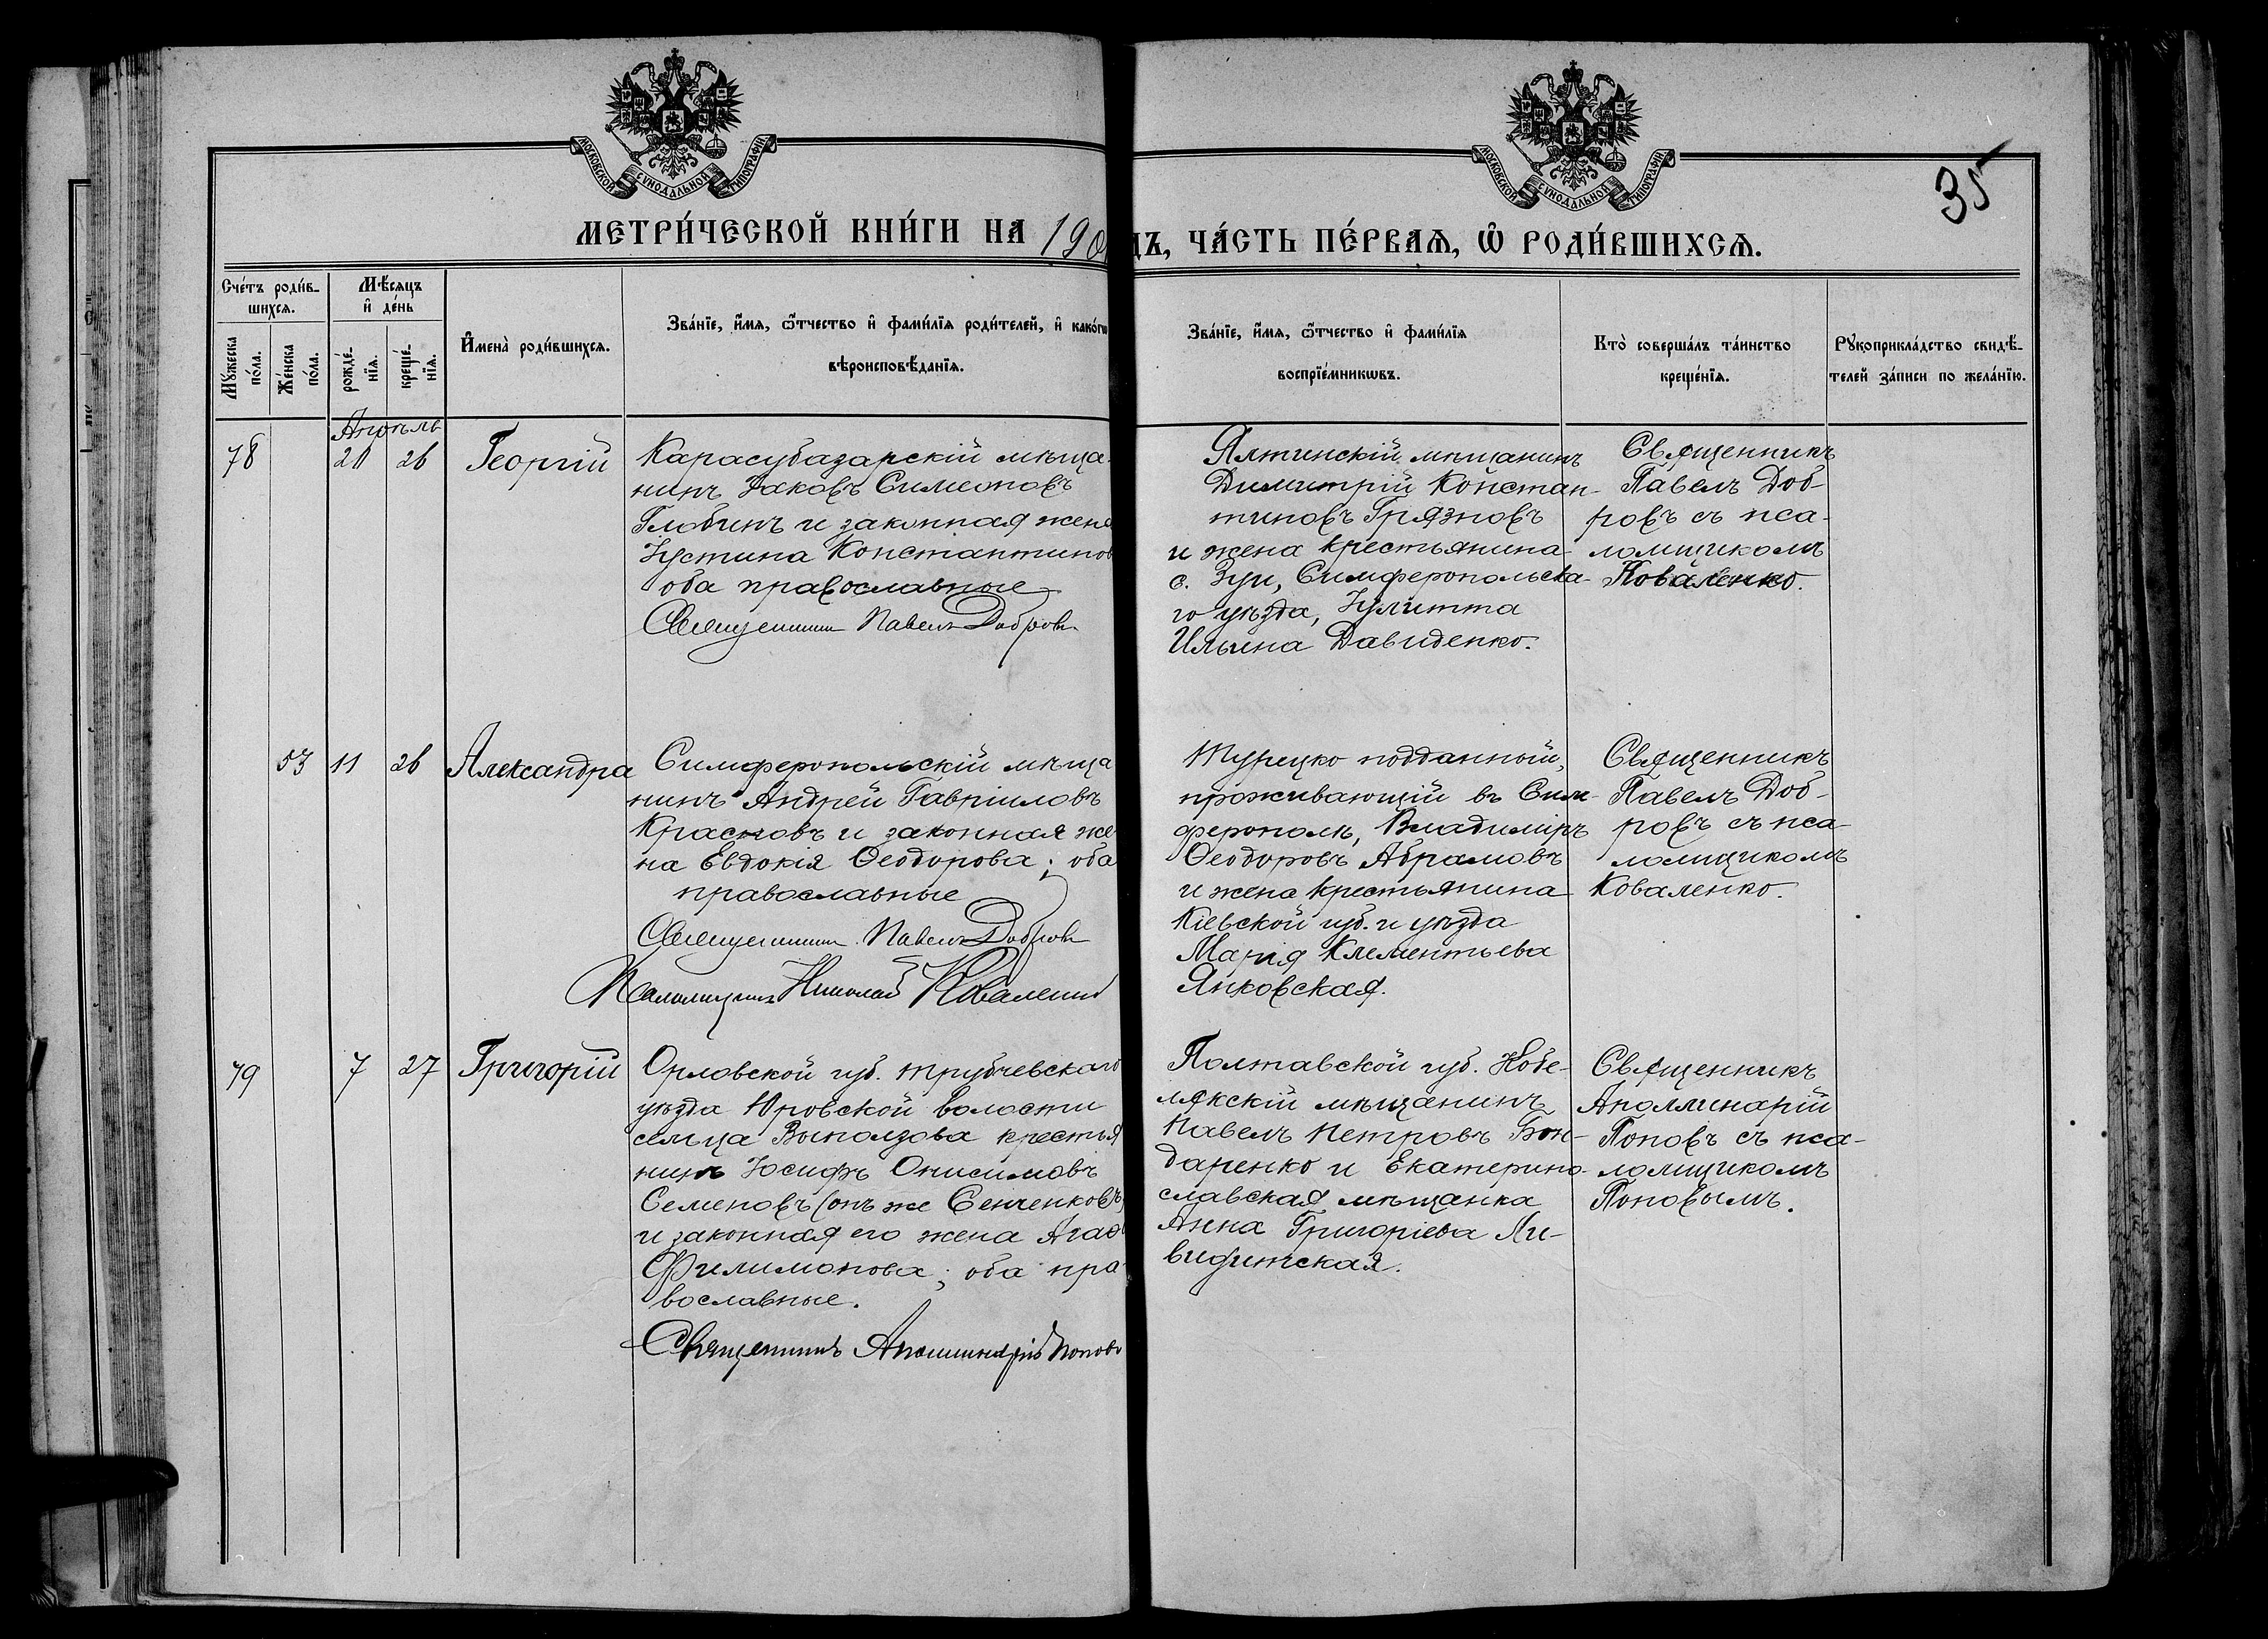 МОСКОВСКОЙ СѴНОДАЛЬНОЙ ТИПОГРАФІИ.
МОСКОВСКОЙ СѴНОДАЛЬНОЙ ТИПОГРАФІИ.
35
МЕТРИ́ЧЕСКОЙ КНИ́ГИ НА 190
ДЪ, ЧА́СТЬ ПЕ́РВАѦ, Ѿ РОДИ́ВШИХСѦ.
Сче́тъ роди́в-
шихсѧ.
Мꙋ́жеска
по́ла.
Же́нска
по́ла.
Мѣ́сѧцъ
и҆ де́нь
рожде́-
нїѧ.
креще́-
нїѧ.
И҆мена̀ роди́вшихсѧ.
Зва́нїе, и҆́мѧ, ѻ҆́тчество и҆ фами́лїѧ роди́телей, и҆ како́гѡ
вѣроисповѣ́данїѧ.
Зва́нїе, и҆́мѧ, ѻ҆́тчество и҆ фами́лїѧ
воспрїе́мникѡвъ.
Кто̀ соверша́лъ та́инство
креще́нїѧ.
Рꙋкоприкла́дство свидѣ́-
телей за́писи по жела́нїю.
Апрѣль
78
26
Георгій
Карасубазарскій мѣща-
нинъ Іаковъ Симеоновъ
Глобинъ и законная жена
Іустина Константинов
оба православные
Священникъ Павелъ Добровъ
Ялтинскій мѣщанинъ
Димитрій Констан-
тиновъ Грязновъ
и жена крестьянина
с. Зуи, Симферопольска-
го уѣзда, Іулитта
Ильина Давиденко.
Священникъ
Павелъ Доб-
ровъ съ пса-
ломщикомъ
Коваленко.
53
11
26
Александра
Симферопольскій мѣща
нинъ Андрей Гавріиловъ
Красновъ и законная же-
на Евдокія Ѳеодорова; оба
православные
Священникъ Павелъ Добровъ
Псаломщикъ Николай Коваленко
Турецко подданный,
проживающій въ Сим-
ферополѣ, Владиміръ
Ѳеодоровъ Абрамовъ
и жена крестьянина
Кіевской губ. и уѣзда
Марія Клементьева
Янковская.
Священникъ
Павелъ Доб-
ровъ съ пса-
ломщикомъ
Коваленко.
79
7
27
Григорій
Орловской губ. Трубчевскаго
уѣзда Юровской волости
сельца Выползова крестья
нинъ Іосифъ Онисимовъ
Семеновъ (онъ же Сенченковъ)
и законная его жена Агаѳ
Филимонова; оба пра-
вославные.
Священникъ Аполлинарій Поповъ
Полтавской губ. Кобе-
лякскій мѣщанинъ
Павелъ Петровъ Бон-
даренко и Екатерино-
славская мѣщанка
Анна Григоріева
Священникъ
Аполлинарій
Поповъ съ пса-
ломщикомъ
Поповымъ.